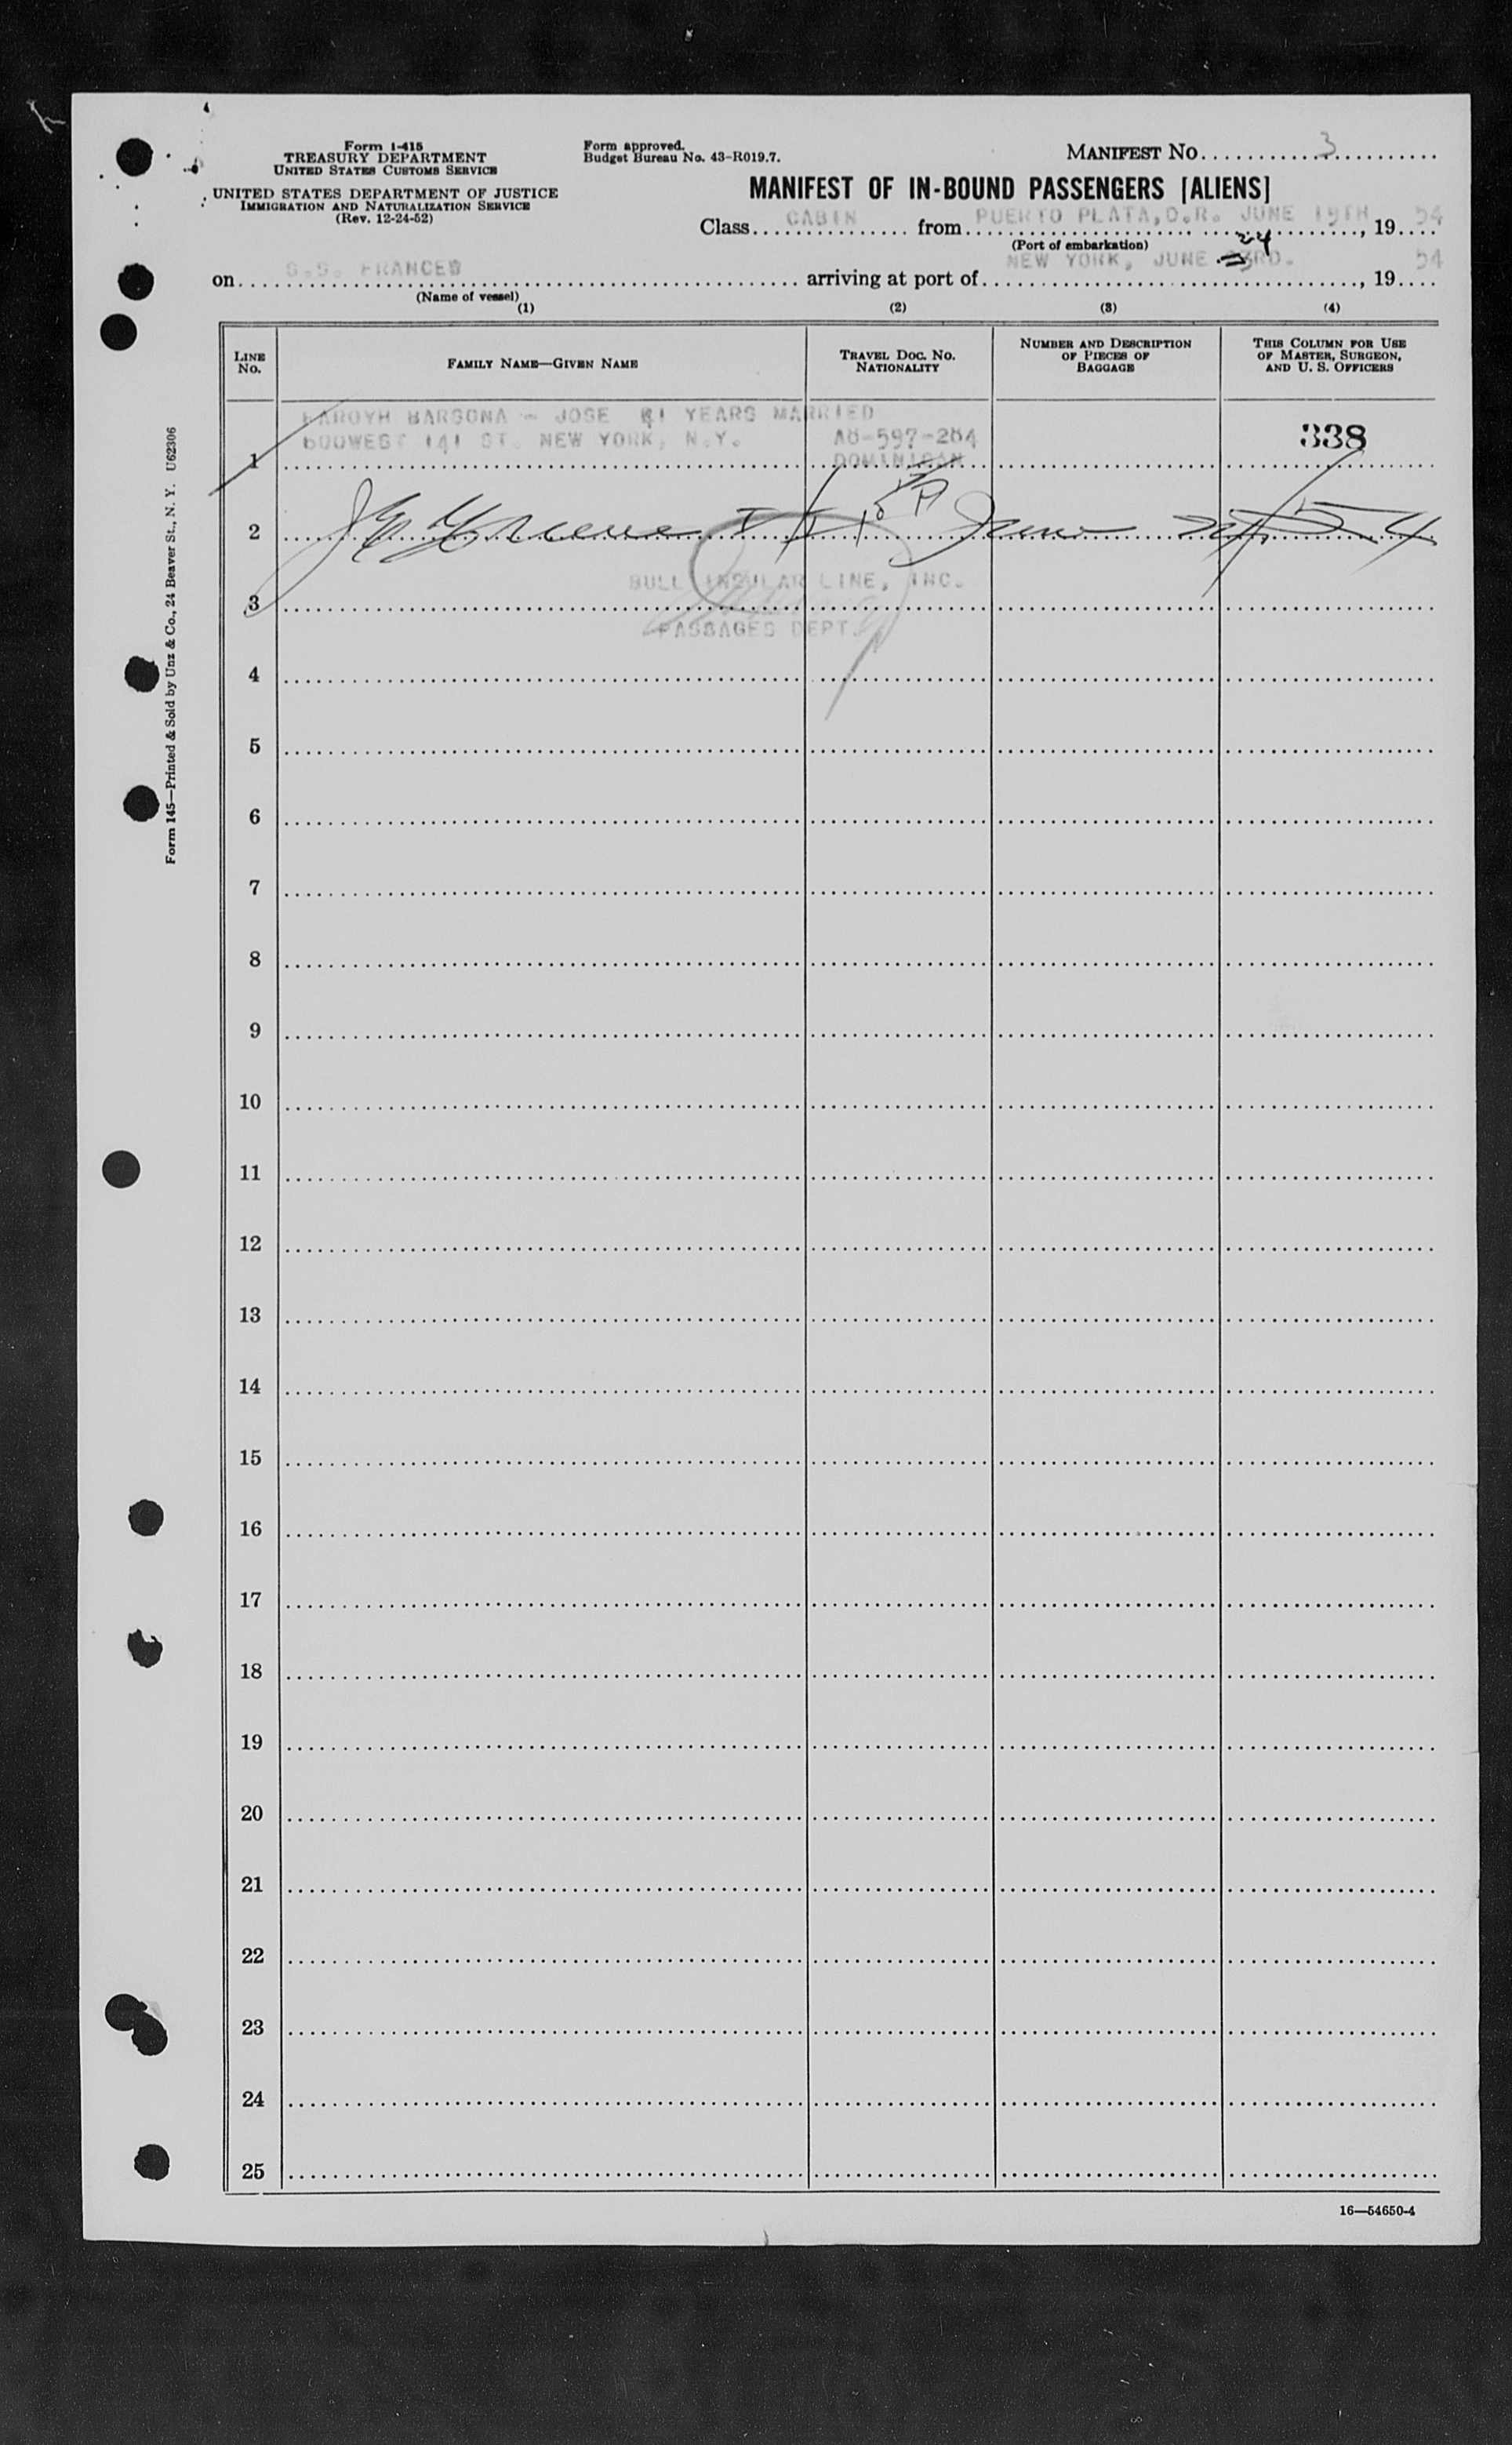 Form I-415
TREASURY DEPARTMENT
UNITED STATES CUSTOMS SERVICE
UNITED STATES DEPARTMENT OF JUSTICE
IMMIGRATION AND NATURALIZATION SERVICE
(Rev. 12-24-52)
Form approved.
Budget Bureau No. 43-R019.7.
MANIFEST NO. 3
MANIFEST OF IN-BOUND PASSENGERS [ALIENS]
Class CABIN from PUERTO PLATA, D.R. JUNE 19TH, 19 54
(Port of embarkation)
24
on S.S. FRANCES arriving at port of NEW YORK, JUNE 23RD. , 19 54
(Name of vessel)
(1) (2) (3) (4)
LINE No.
FAMILY NAME—GIVEN NAME
TRAVEL DOC. NO. NATIONALITY
NUMBER AND DESCRIPTION OF PIECES OF BAGGAGE
THIS COLUMN FOR USE OF MASTER, SURGEON, AND U. S. OFFICERS
BARSONA - JOSE 61 YEARS MARRIED
600WEST 141 ST. NEW YORK, N.Y. A8-597-284 338
1 DOMINICAN
2 June 24/54
BULL INSULAR LINE, INC.
3
PASSAGES DEPT.
4
5
6
7
8
9
10
11
12
13
14
15
16
17
18
19
20
21
22
23
24
25
Form 145—Printed & Sold by Unz & Co., 24 Beaver St., N. Y. U62306
16—54650-4